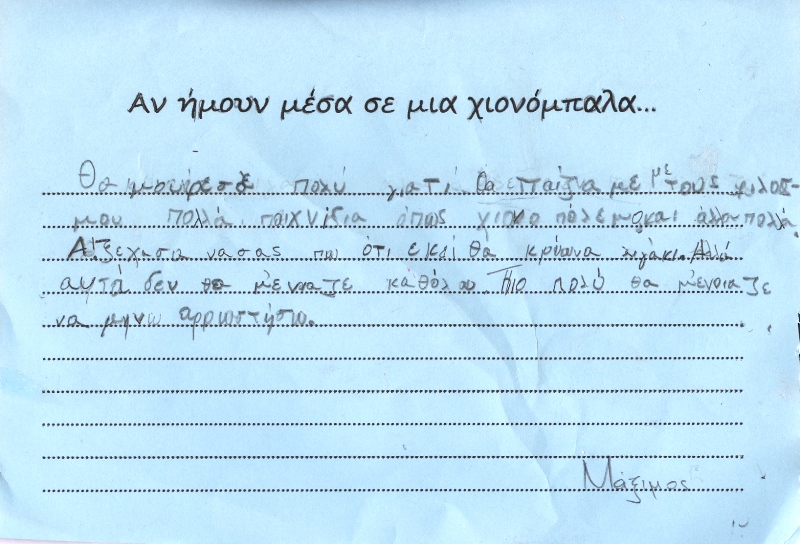 Αν ήμουν μέσα σε μια χιονόμπαλα...
Θα μου άρεσε πολύ γιατί θα επαιζα με με τους φιλους
μου πολλά παιχνίδια όπως χιονο πόλεμο και άλλα πολλά.
Α! Ξεχασα να σας πω ότι εκεί θα κρύωνα λιγάκι. Αλλά
αυτό δεν θα μ'ενιαζε καθόλου Πιο πολύ θα μ'ενοιαζε
να μην αρρωστήσω.
Μάξιμος